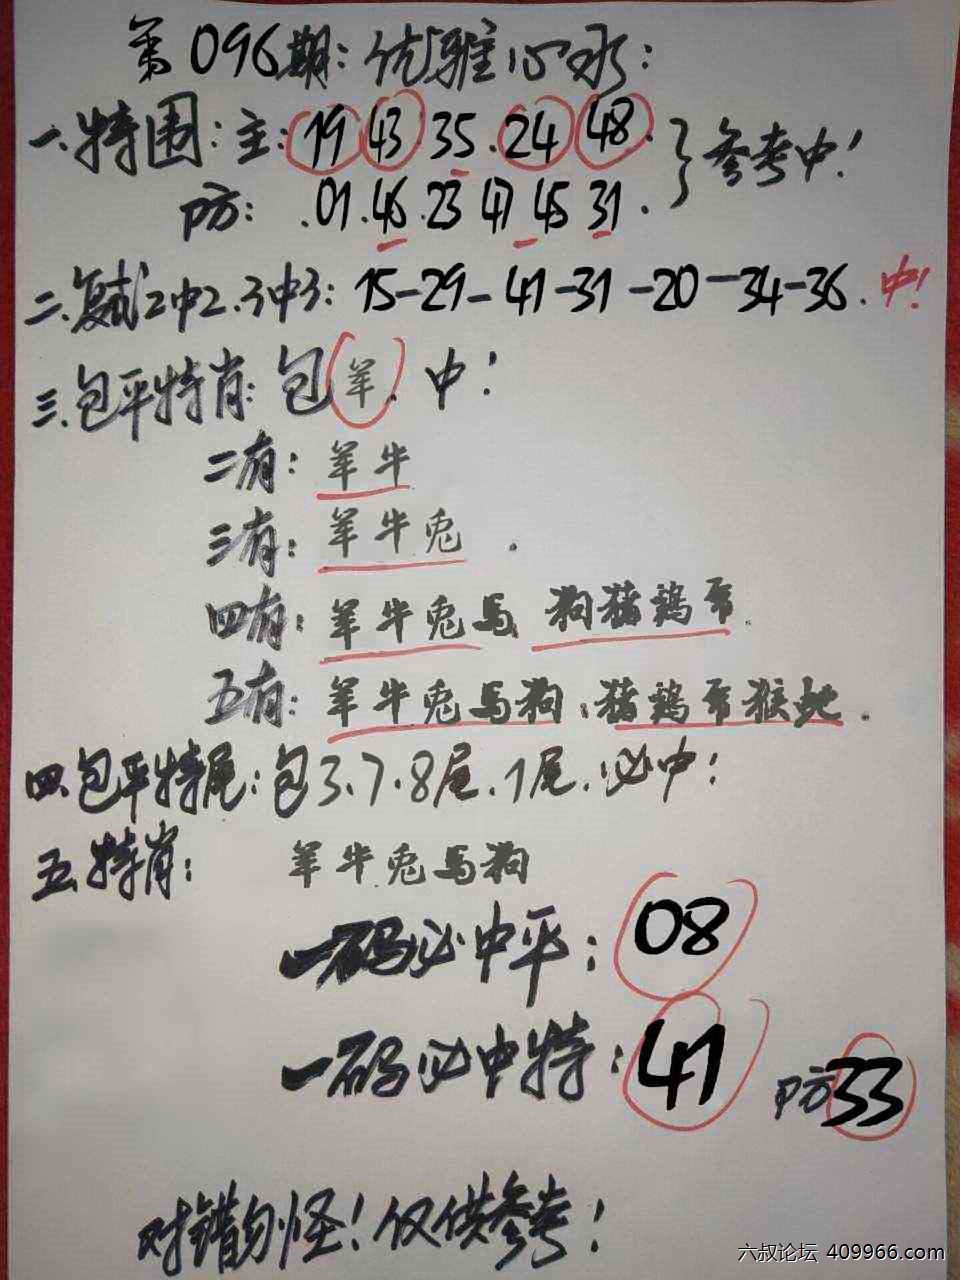 第096期：优雅心水：
一.特围：主：19 43 35.24 48.
防：.01.46.23 47 45 31.
}参考中！
二.复式2中2.3中3：15-29-41-31-20-34-36.中！
三.包平特肖：包羊.中！
二有：羊牛
三有：羊牛兔.
四有：羊牛兔马 狗猪鸡
五有：羊牛兔马狗：猪鸡 猴蛇.
四.包平特尾：包3.7.8尾.1尾.必中！
五.特肖：羊牛兔马狗
一码必中平：08
一码必中特：41 防33
对错勿怪！仅供参考！
六叔论坛 409966.com